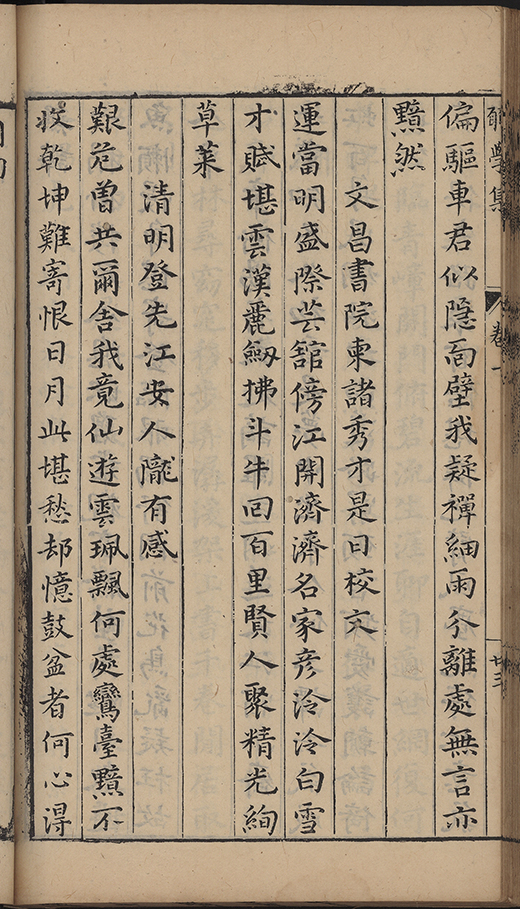 學集 卷一 廿三
偏驅車君似隱面壁我疑禪細雨分離處無言亦
黯然
文昌書院柬諸秀才是日校文
運當明盛際芸舘傍江開濟濟名家彦泠泠白雪
才賦堪雲漢麗劒拂斗牛回百里賢人聚精光絢
草萊
清明登先江安人隴有感
艱危曽共爾舍我竟仙遊雲珮飄何處鸞臺黯不
收乾坤難寄恨日月此堪愁却憶鼓盆者何心得